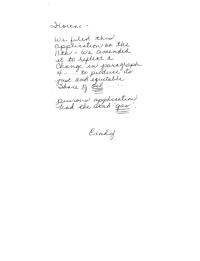 Florene -
We filed this
application on the
11th - We amended
it to reflect a
change in paragraph
4 - ". to produce its
just and equitable
share of oil ....
previous application
had the word gas.
Cindy